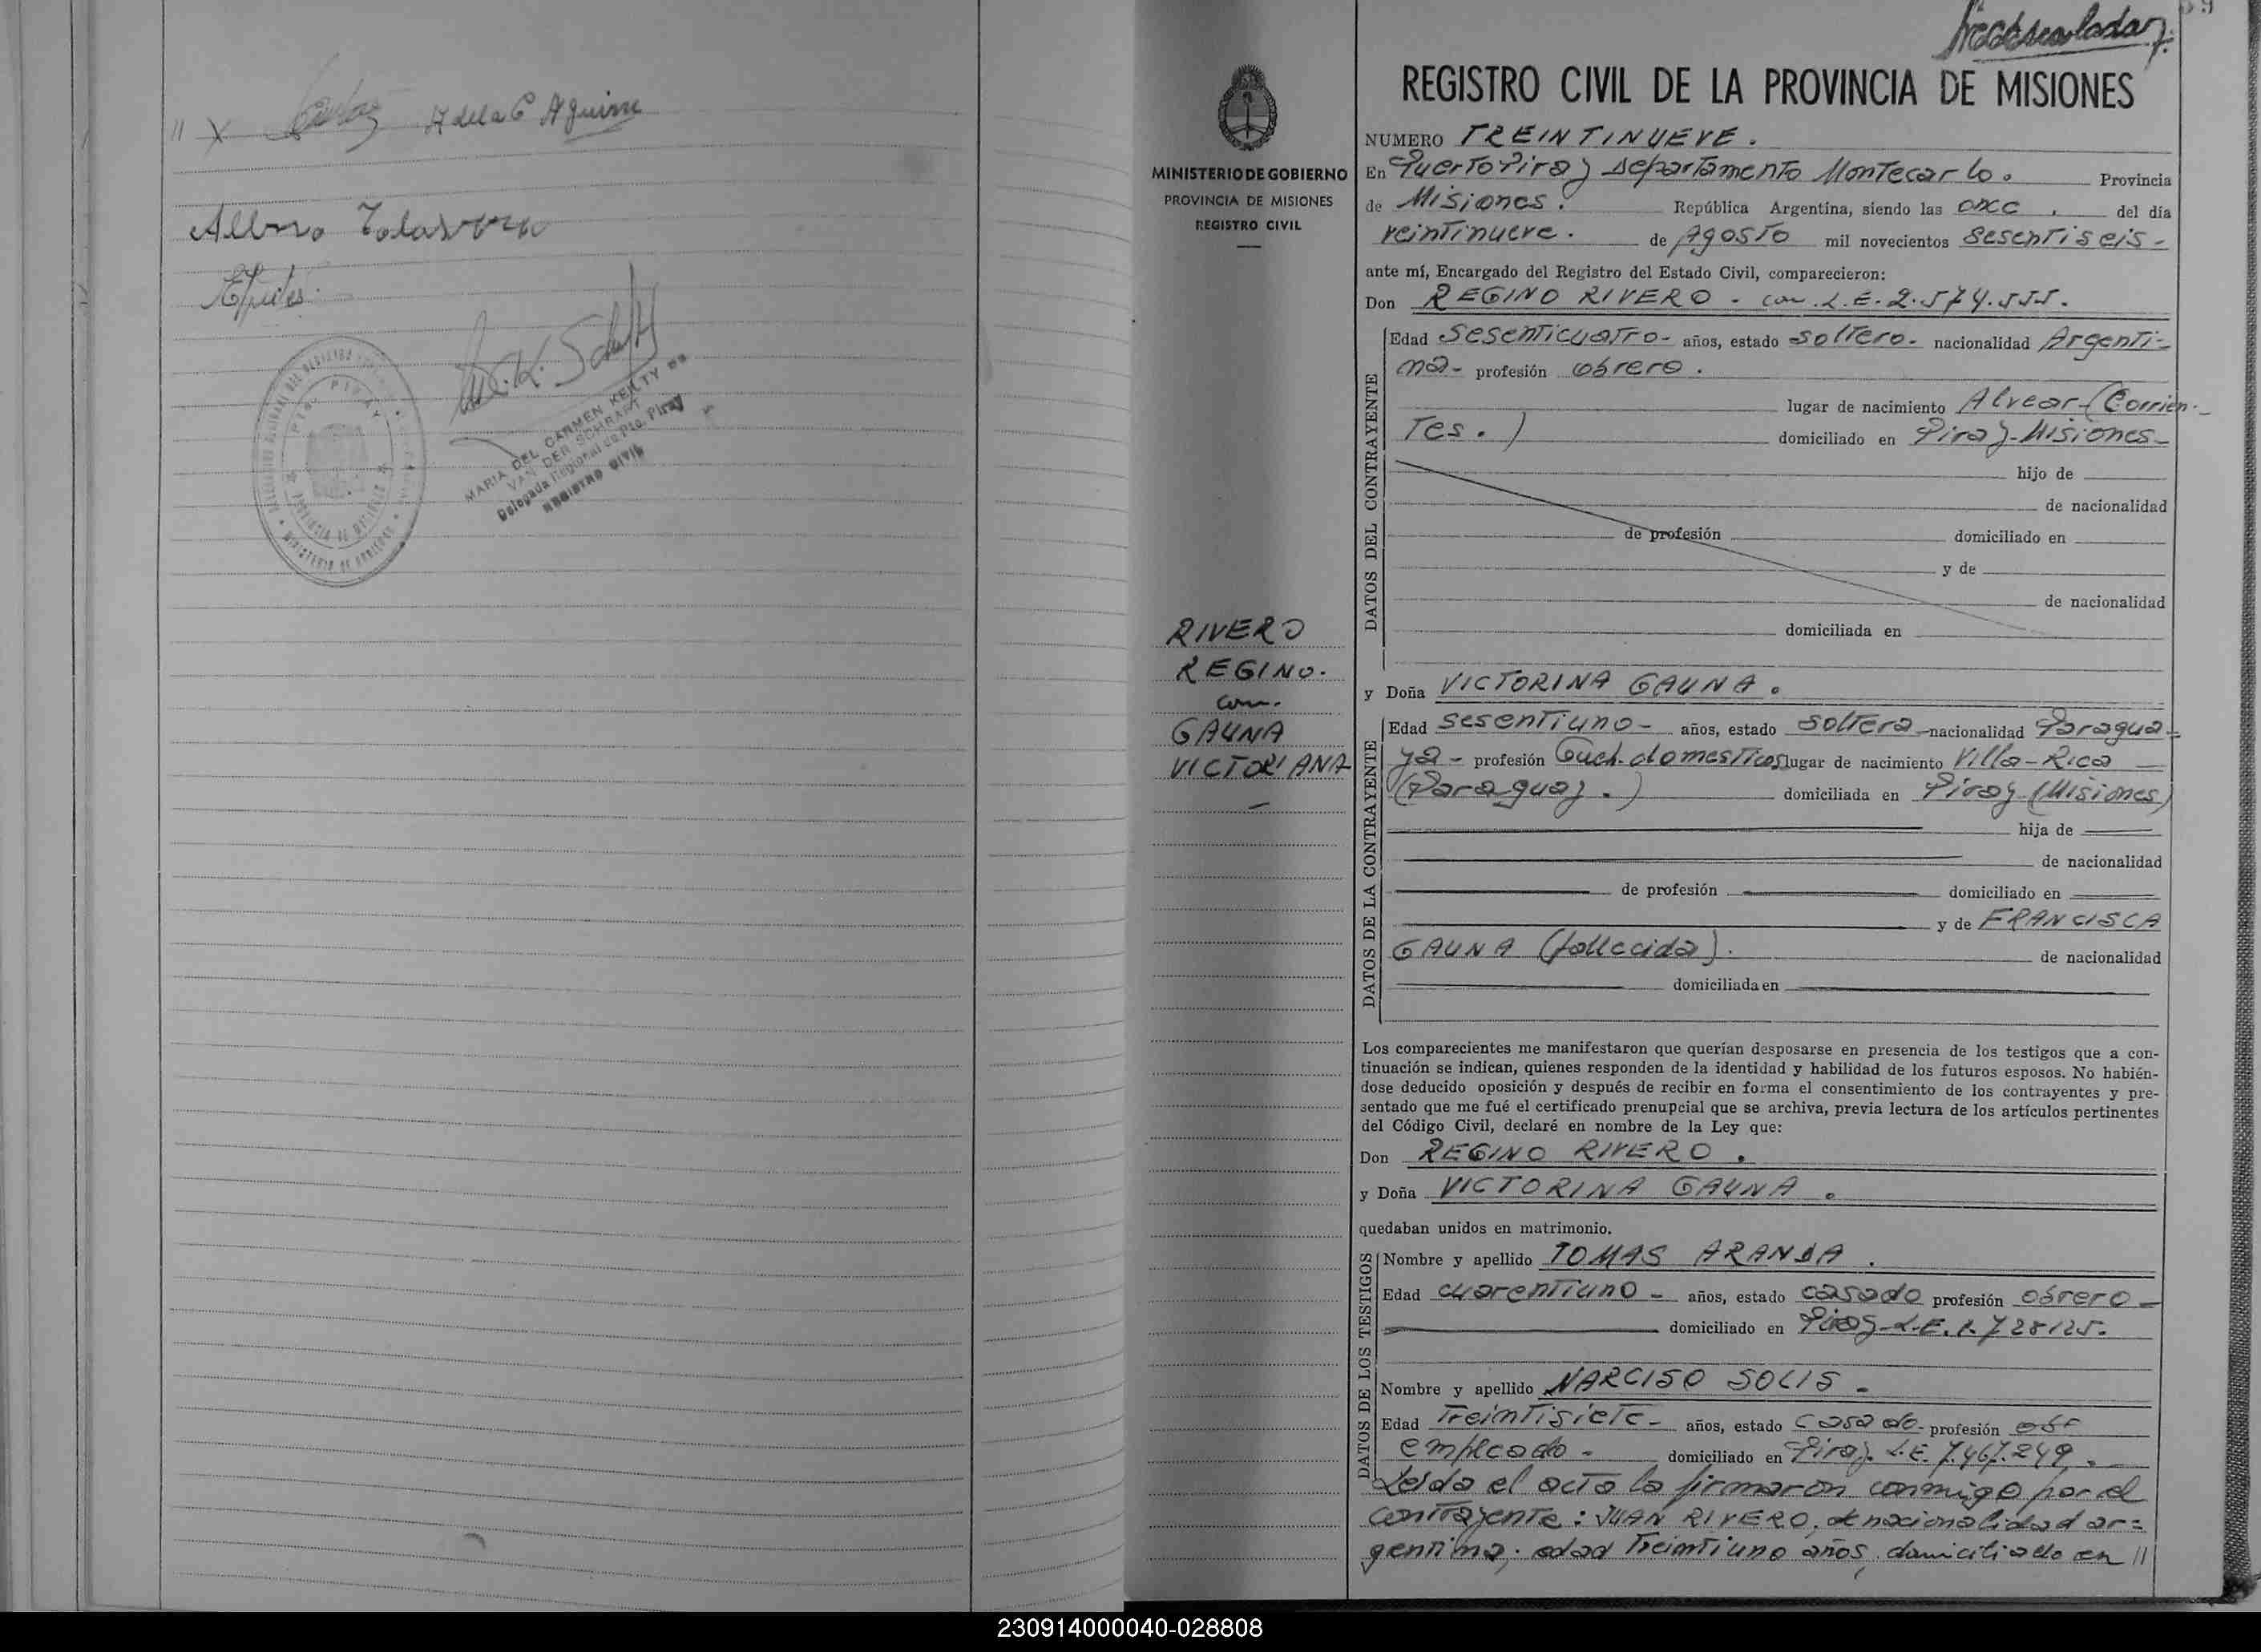 Adela C Aguirre
MARIA DEL CARMEN KEILTY DE
VAN DER SCHRAFT
Delegada Regional de Pto. Piray
REGISTRO CIVIL
MINISTERIO DE GOBIERNO
PROVINCIA DE MISIONES
REGISTRO CIVIL
RIVERO
REGINO.
con.
GAUNA
VICTORIANA
REGISTRO CIVIL DE LA PROVINCIA DE MISIONES
NUMERO TREINTINUEVE.
En Puerto Piray Departamento Montecarlo. Provincia
de Misiones. República Argentina, siendo las once. del día
veintinueve. de Agosto mil novecientos sesentiseis-
ante mí, Encargado del Registro del Estado Civil, comparecieron:
Don REGINO RIVERO - con L.E. 2.574.555.
DATOS DEL CONTRAYENTE
Edad Sesenticuatro- años, estado soltero- nacionalidad Argenti-
na- profesión obrero.
lugar de nacimiento Alvear-(Corrien-
tes.) domiciliado en Piray-Misiones-
hijo de
de nacionalidad
de profesión domiciliado en
y de
de nacionalidad
domiciliada en
y Doña VICTORINA GAUNA.
DATOS DE LA CONTRAYENTE
Edad sesentiuno- años, estado soltera- nacionalidad Paragua=
ya- profesión Queh. domesticos lugar de nacimiento Villa-Rica
(Paraguay.) domiciliada en Piray (Misiones)
hija de
de nacionalidad
de profesión domiciliado en
y de FRANCISCA
GAUNA (fallecida). de nacionalidad
domiciliada en
Los comparecientes me manifestaron que querían desposarse en presencia de los testigos que a con-
tinuación se indican, quienes responden de la identidad y habilidad de los futuros esposos. No habién-
dose deducido oposición y después de recibir en forma el consentimiento de los contrayentes y pre-
sentado que me fué el certificado prenupcial que se archiva, previa lectura de los artículos pertinentes
del Código Civil, declaré en nombre de la Ley que:
Don REGINO RIVERO.
y Doña VICTORINA GAUNA.
quedaban unidos en matrimonio.
DATOS DE LOS TESTIGOS
Nombre y apellido TOMAS ARANDA.
Edad cuarentiuno- años, estado casado profesión obrero-
domiciliado en Piray-L.E. 1.728125.
Nombre y apellido NARCISO SOLIS.
Edad Treintisiete- años, estado casado- profesión
empleado. domiciliado en Piray. L.E. 7.467.249.
Leida el acta la firmaron conmigo por el
contrayente: JUAN RIVERO, de nacionalidad ar=
gentina, edad treintiuno años, domiciliado en //
230914000040-028808